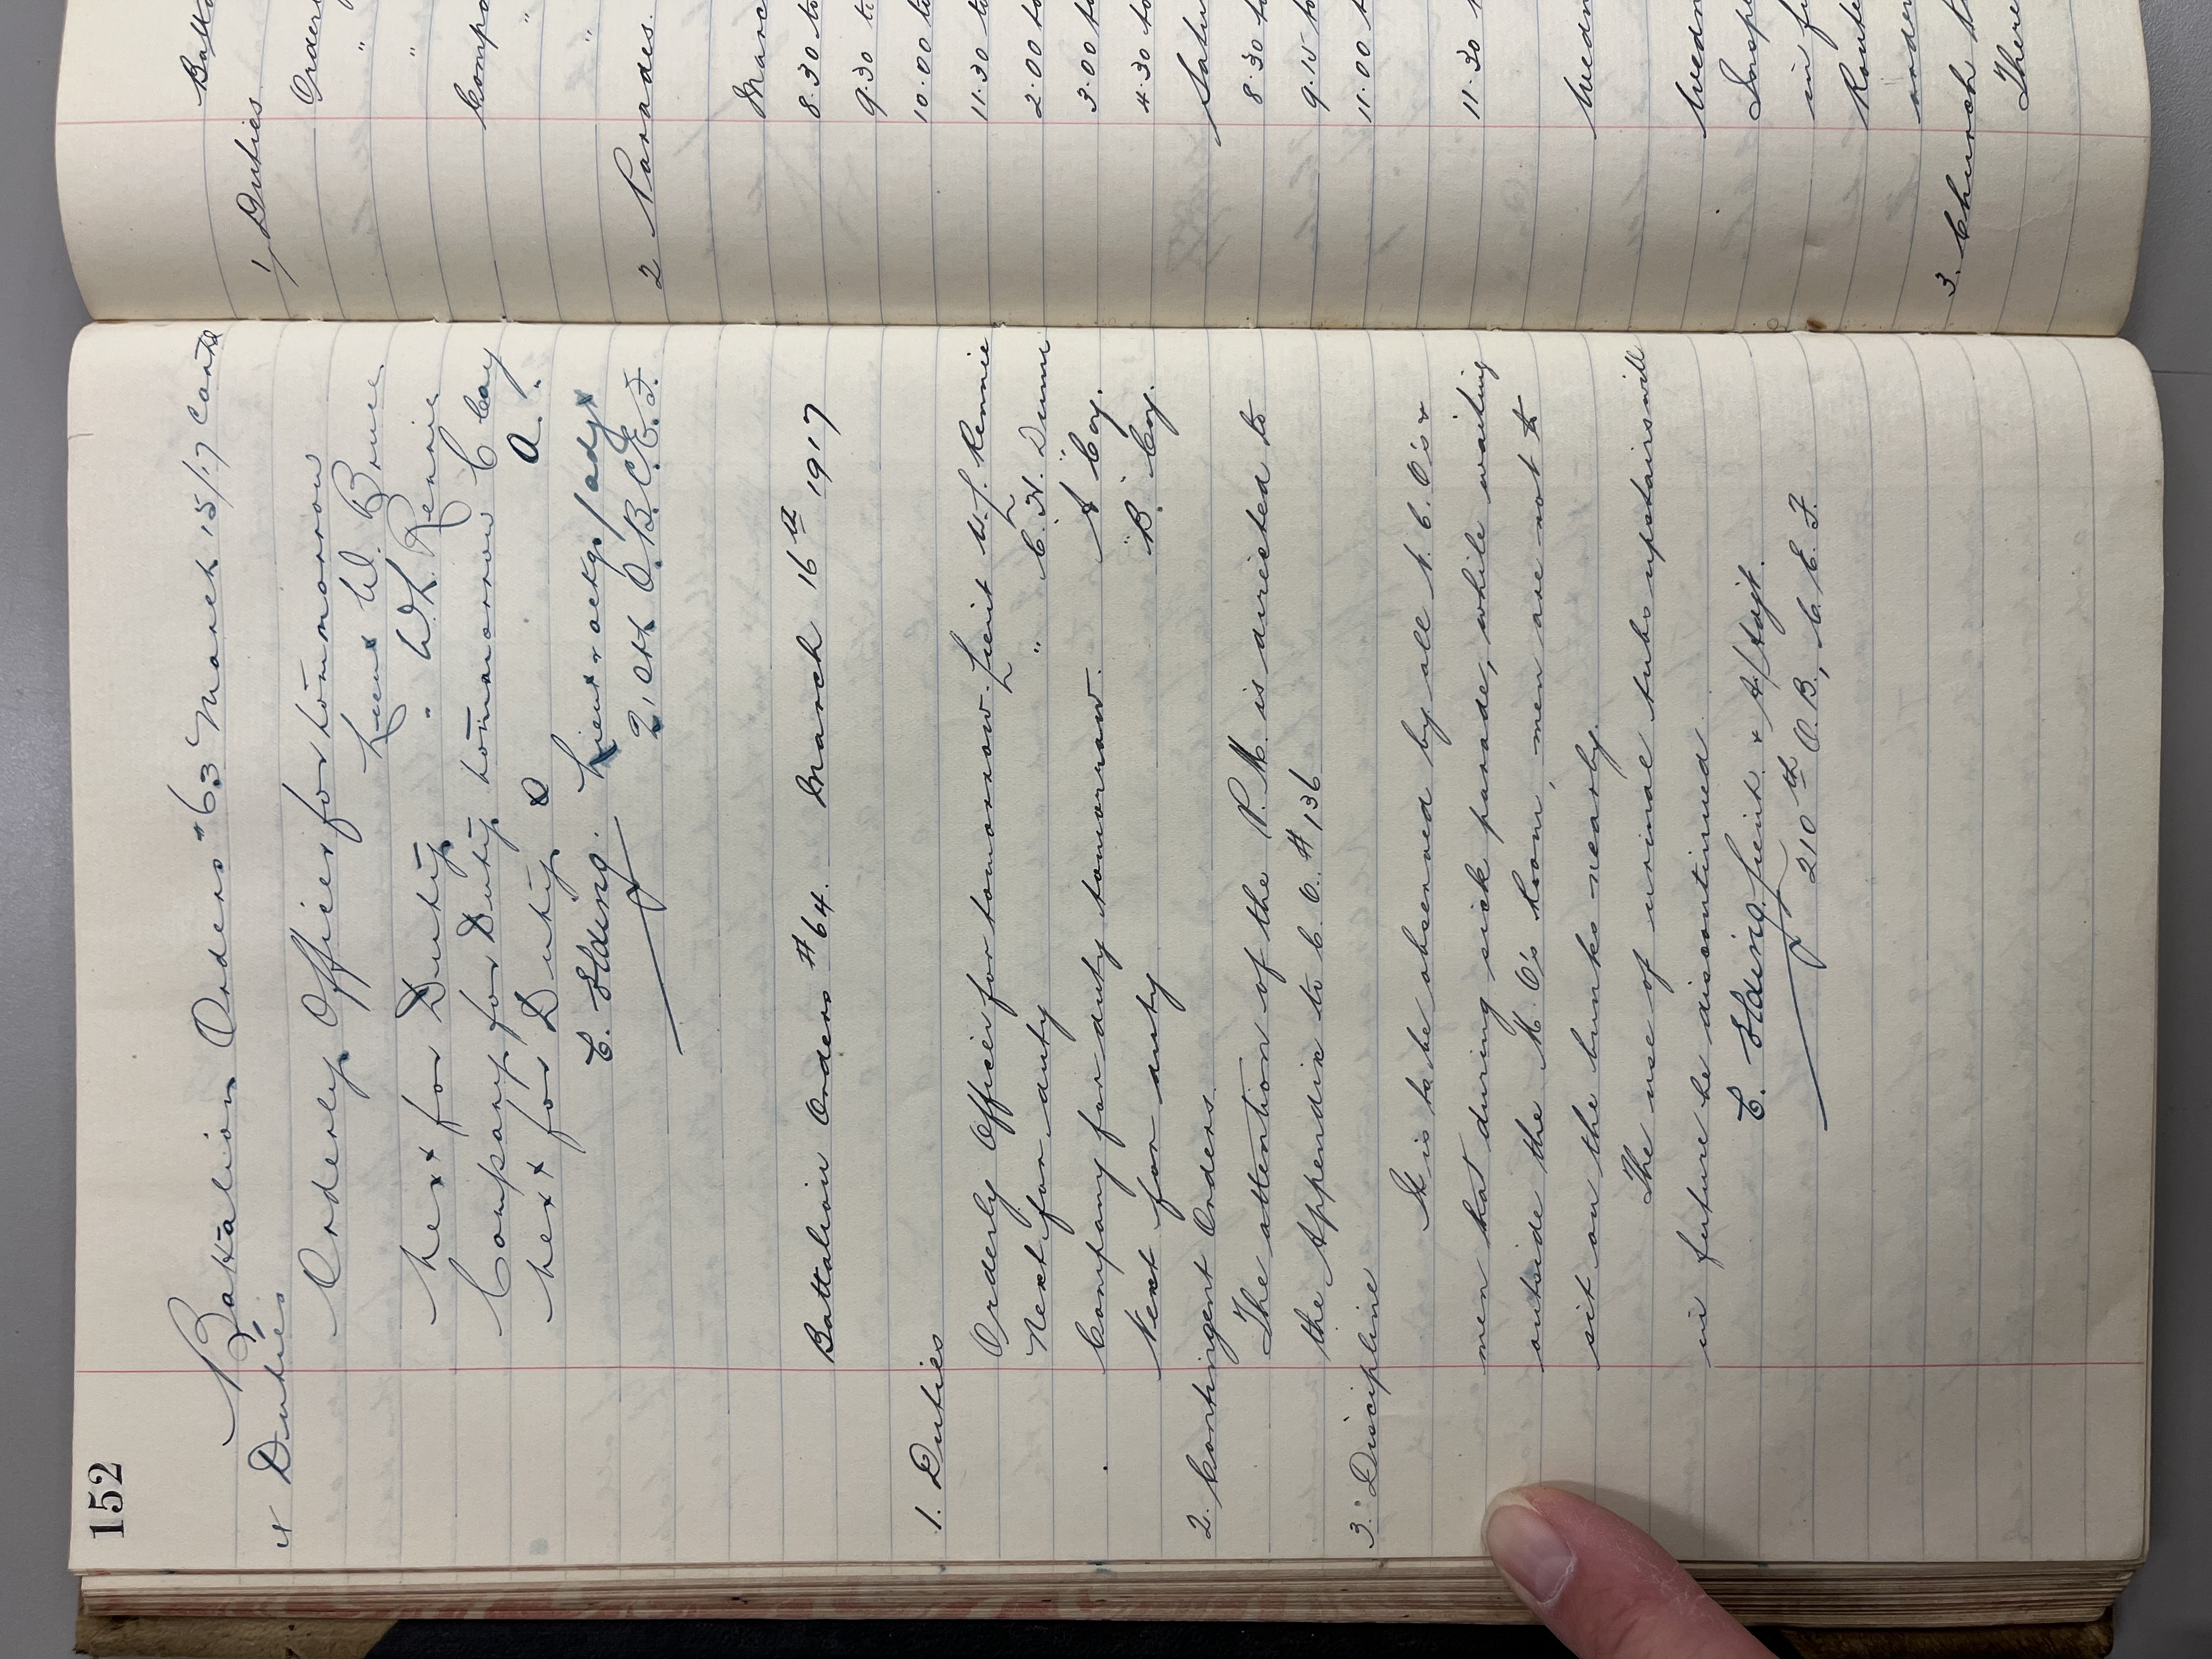 152
Battalion Orders #63 March 15/17 Contd
4 Duties
Orderly Officer for tommorrow
Lieut W. Bruce
next for Duty " W.L. Rennie
Company for Duty tommorrow C Coy
next for Duty D A.
C. Lieut & actg/adjt
210th O.B. C.E.F.
Battalion Orders #64. March 16th 1917
1. Duties
Orderly Officer for tomorrow. Lieut W. L. Rennie
Next for duty " C. H. Dunn
Company for duty tomorrow. "A" Coy.
Next for duty "B" Coy.
2. Contingent Orders.
The attention of the P.M. is directed to
the Appendix to C. O. # 136
3. Discipline
It is to be observed by all N. C. O's &
men that during sick parade, while waiting
outside the M. O's Room, men are not to
sit on the bunks nearby.
The use of urinal tubs upstairs will
in future be discontinued.
C. Lieut. & A/Adjt.
210th O.B., C. E. F.
Batta
1/ Duties
Orderly
"
"
Compa
"
"
2 Parades.
8.30 to
9.30 to
10.00 to
11.30 to
2.00 to
3.00 to
4.30 to
Satur
8.30 to
9.15 to
11.00 t
11.30 t
Wedn
Wedn
Inspe
in fu
Route
order
3. Church
There